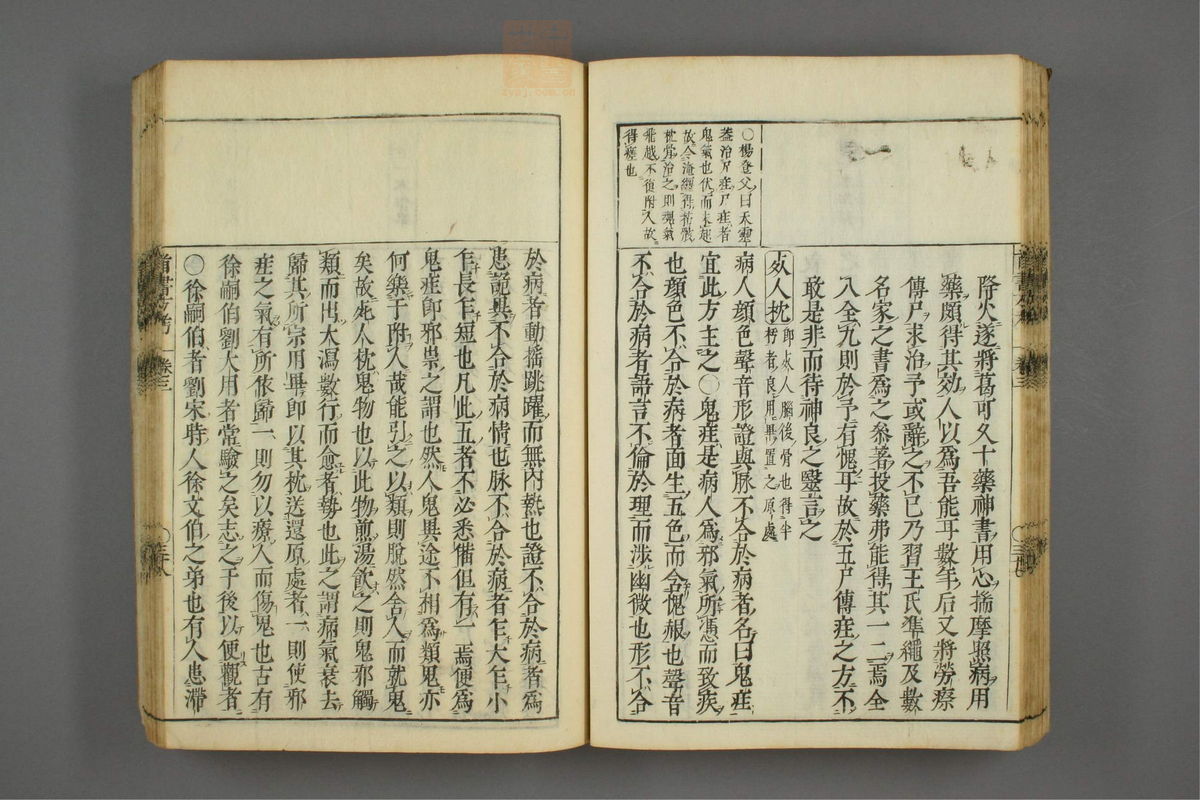 降火遂將葛可久十藥神書用心揣摩照病用
藥頗得其效人以爲吾能耳數年后又將勞瘵
傳尸求治予或辭之不已乃習王氏準繩及數
名家之書爲之叅著投藥弗能得其一二焉全
入全九則於予有愧耳故於五尸傳疰之方不
敢是非而待神良之毉言之
○楊登父曰天靈
蓋治尸疰尸疰者
鬼氣也伏而未起
故令淹纏得枯骸
枕骨治之則魂氣
飛越不復附人故
得瘥也
死人枕 即死人腦後骨也得半
朽者良用畢置之原處
病人顔色聲音形證與脉不合於病者名曰鬼疰
宜此方主之○鬼疰是病人爲邪氣所憑而致疾
也顔色不合於病者面生五色而含愧赧也聲音
不合於病者語言不倫於理而涉幽微也形不合
於病者動揺跳躍而無内熱也證不合於病者爲
患詭異不合於病情也脉不合於病者乍大乍小
乍長乍短也凡此五者不必悉偹但有一焉便爲
鬼疰即邪祟之謂也然人鬼異途不相爲類鬼亦
何樂于附人哉能引之以類則脫然舍人而就鬼
矣故死人枕鬼物也以此物煎湯飲之則鬼邪觸
類而出大瀉數行而愈者勢也此之謂病氣衰去
歸其所宗用畢即以其枕送還原處者一則使邪
疰之氣有所依歸一則勿以療人而傷鬼也古有
徐嗣伯劉大用者常驗之矣志之于後以便觀者
○徐嗣伯者劉宋時人徐文伯之弟也有人患滯
卷三
卷三